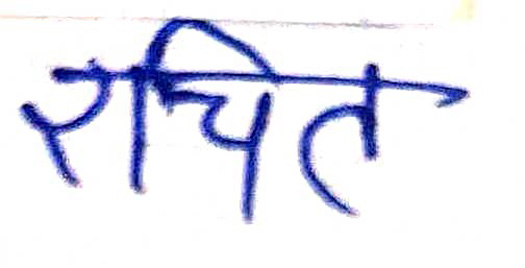 रचित